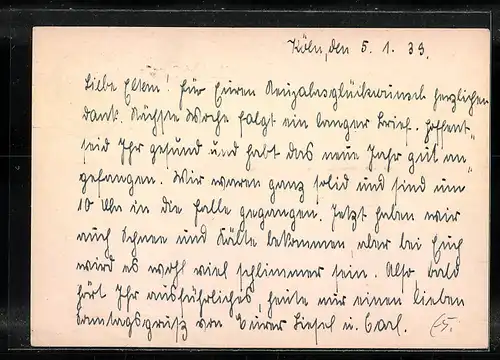 Köln, den 5. 1. 39.
Liebe Eltern! für Euren Neujahrsglückwunsch herzlichen
Dank. Nächste Woche folgt ein langer Brief. Hoffent-
seid Ihr gesund und habt das neue Jahr gut an-
gefangen. Wir waren ganz solid und sind um
10 Uhr in die Falle gegangen. Jetzt haben wir
auch Schnee und Kälte bekommen, aber bei Euch
wird es wohl viel schlimmer sein. Also bald
hört Ihr ausführliches, heute nur einen lieben
Samstagsgruß von Eurer Liesel u. Carl.